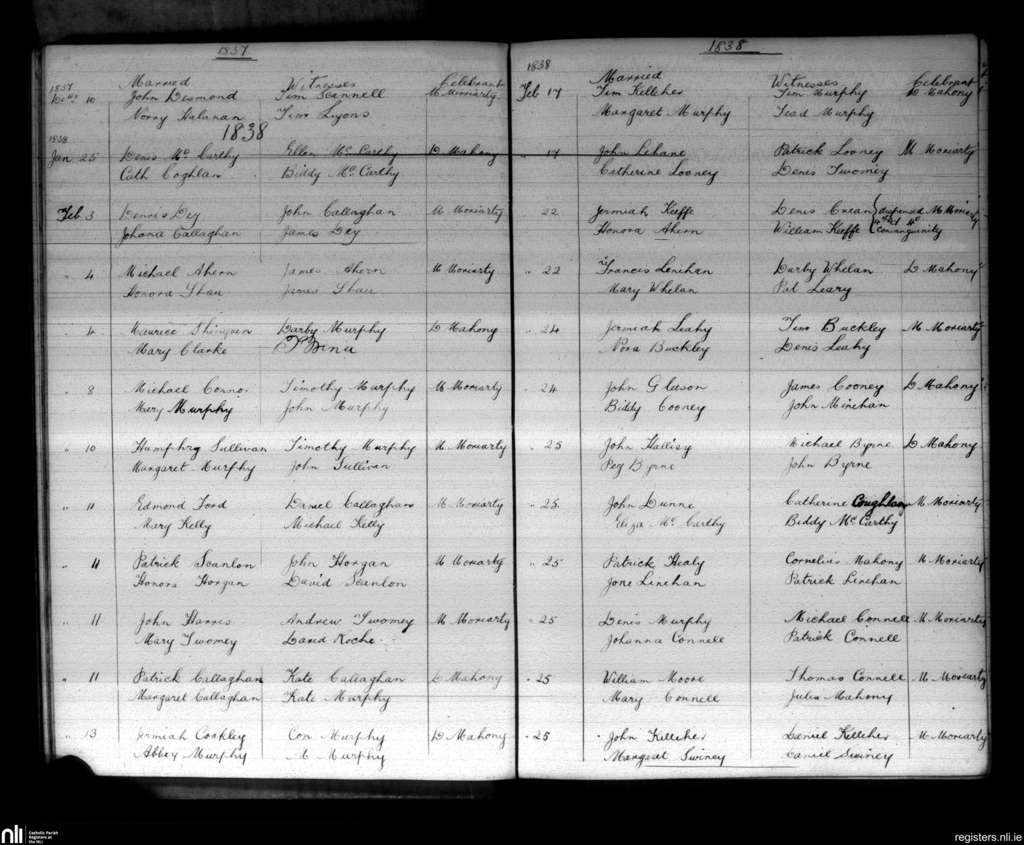 1837
1837 Married Witnesses Celebrant
Decr 10 John Desmond Tim Scannell M Moriarty
Nory Halanan Tim Lyons
1838
1838
Jan 25 Denis Mc Carthy Ellen Mc Carthy D Mahony
Cath Coghlan Biddy Mc Carthy
Feb 3 Dennis Dey John Callaghan M Moriarty
Johana Callaghan James Dey
" 4 Michael Ahern James Ahern M Moriarty
Honora Shau James Shau
" 4 Maurice Darby Murphy D Mahony
Mary Clarke
" 8 Michael Connor Timothy Murphy M Moriarty
Mary Murphy John Murphy
" 10 Humphrey Sullivan Timothy Murphy M Moriarty
Margaret Murphy John Sullivan
" 11 Edmond Ford Daniel Callaghan M Moriarty
Mary Kelly Michael Kelly
" 11 Patrick Scanlon John Horgan M Moriarty
Honora Horgan David Scanlon
" 11 John Harris Andrew Twomey M Moriarty
Mary Twomey David Roche
" 11 Patrick Callaghan Kate Callaghan D Mahony
Margaret Callaghan Kate Murphy
" 13 Jermiah Coakley Con Murphy D Mahony
Abbey Murphy Murphy
1838
1838 Married Witnesses Celebrant
Feb 17 Tim Kelleher Tim Murphy D Mahony
Margaret Murphy Tead Murphy
" 17 John Lehane Patrick Looney M Moriarty
Catherine Looney Denis Twomey
" 22 Jermiah Keeffe Denis Crean dispensed M Moriarty
Honora Ahern William Keeffe 4th et 4o consanguinity
" 22 Francis Lenihan Darby Whelan D Mahony
Mary Whelan Pat Leary
" 24 Jermiah Leahy Tim Buckley M Moriarty
Nora Buckley Denis Leahy
" 24 John Gleeson James Cooney D Mahony
Biddy Cooney John Minehan
" 25 John Hallisy Michael Byrne D Mahony
Peg Byrne John Byrne
" 25 John Dunne Catherine Coughlan M Moriarty
Eliza Mc Carthy Biddy Mc Carthy
" 25 Patrick Healy Cornelius Mahony M Moriarty
Jone Linehan Patrick Linehan
" 25 Denis Murphy Michael Connell M Moriarty
Johanna Connell Patrick Connell
" 25 William Moore Thomas Connell M Moriarty
Mary Connell Julia Mahony
" 25 John Kelleher Daniel Kelleher M Moriarty
Margaet Swiney Daniel Swiney
nli Catholic Parish
Registers at
the NLI
registers.nli.ie